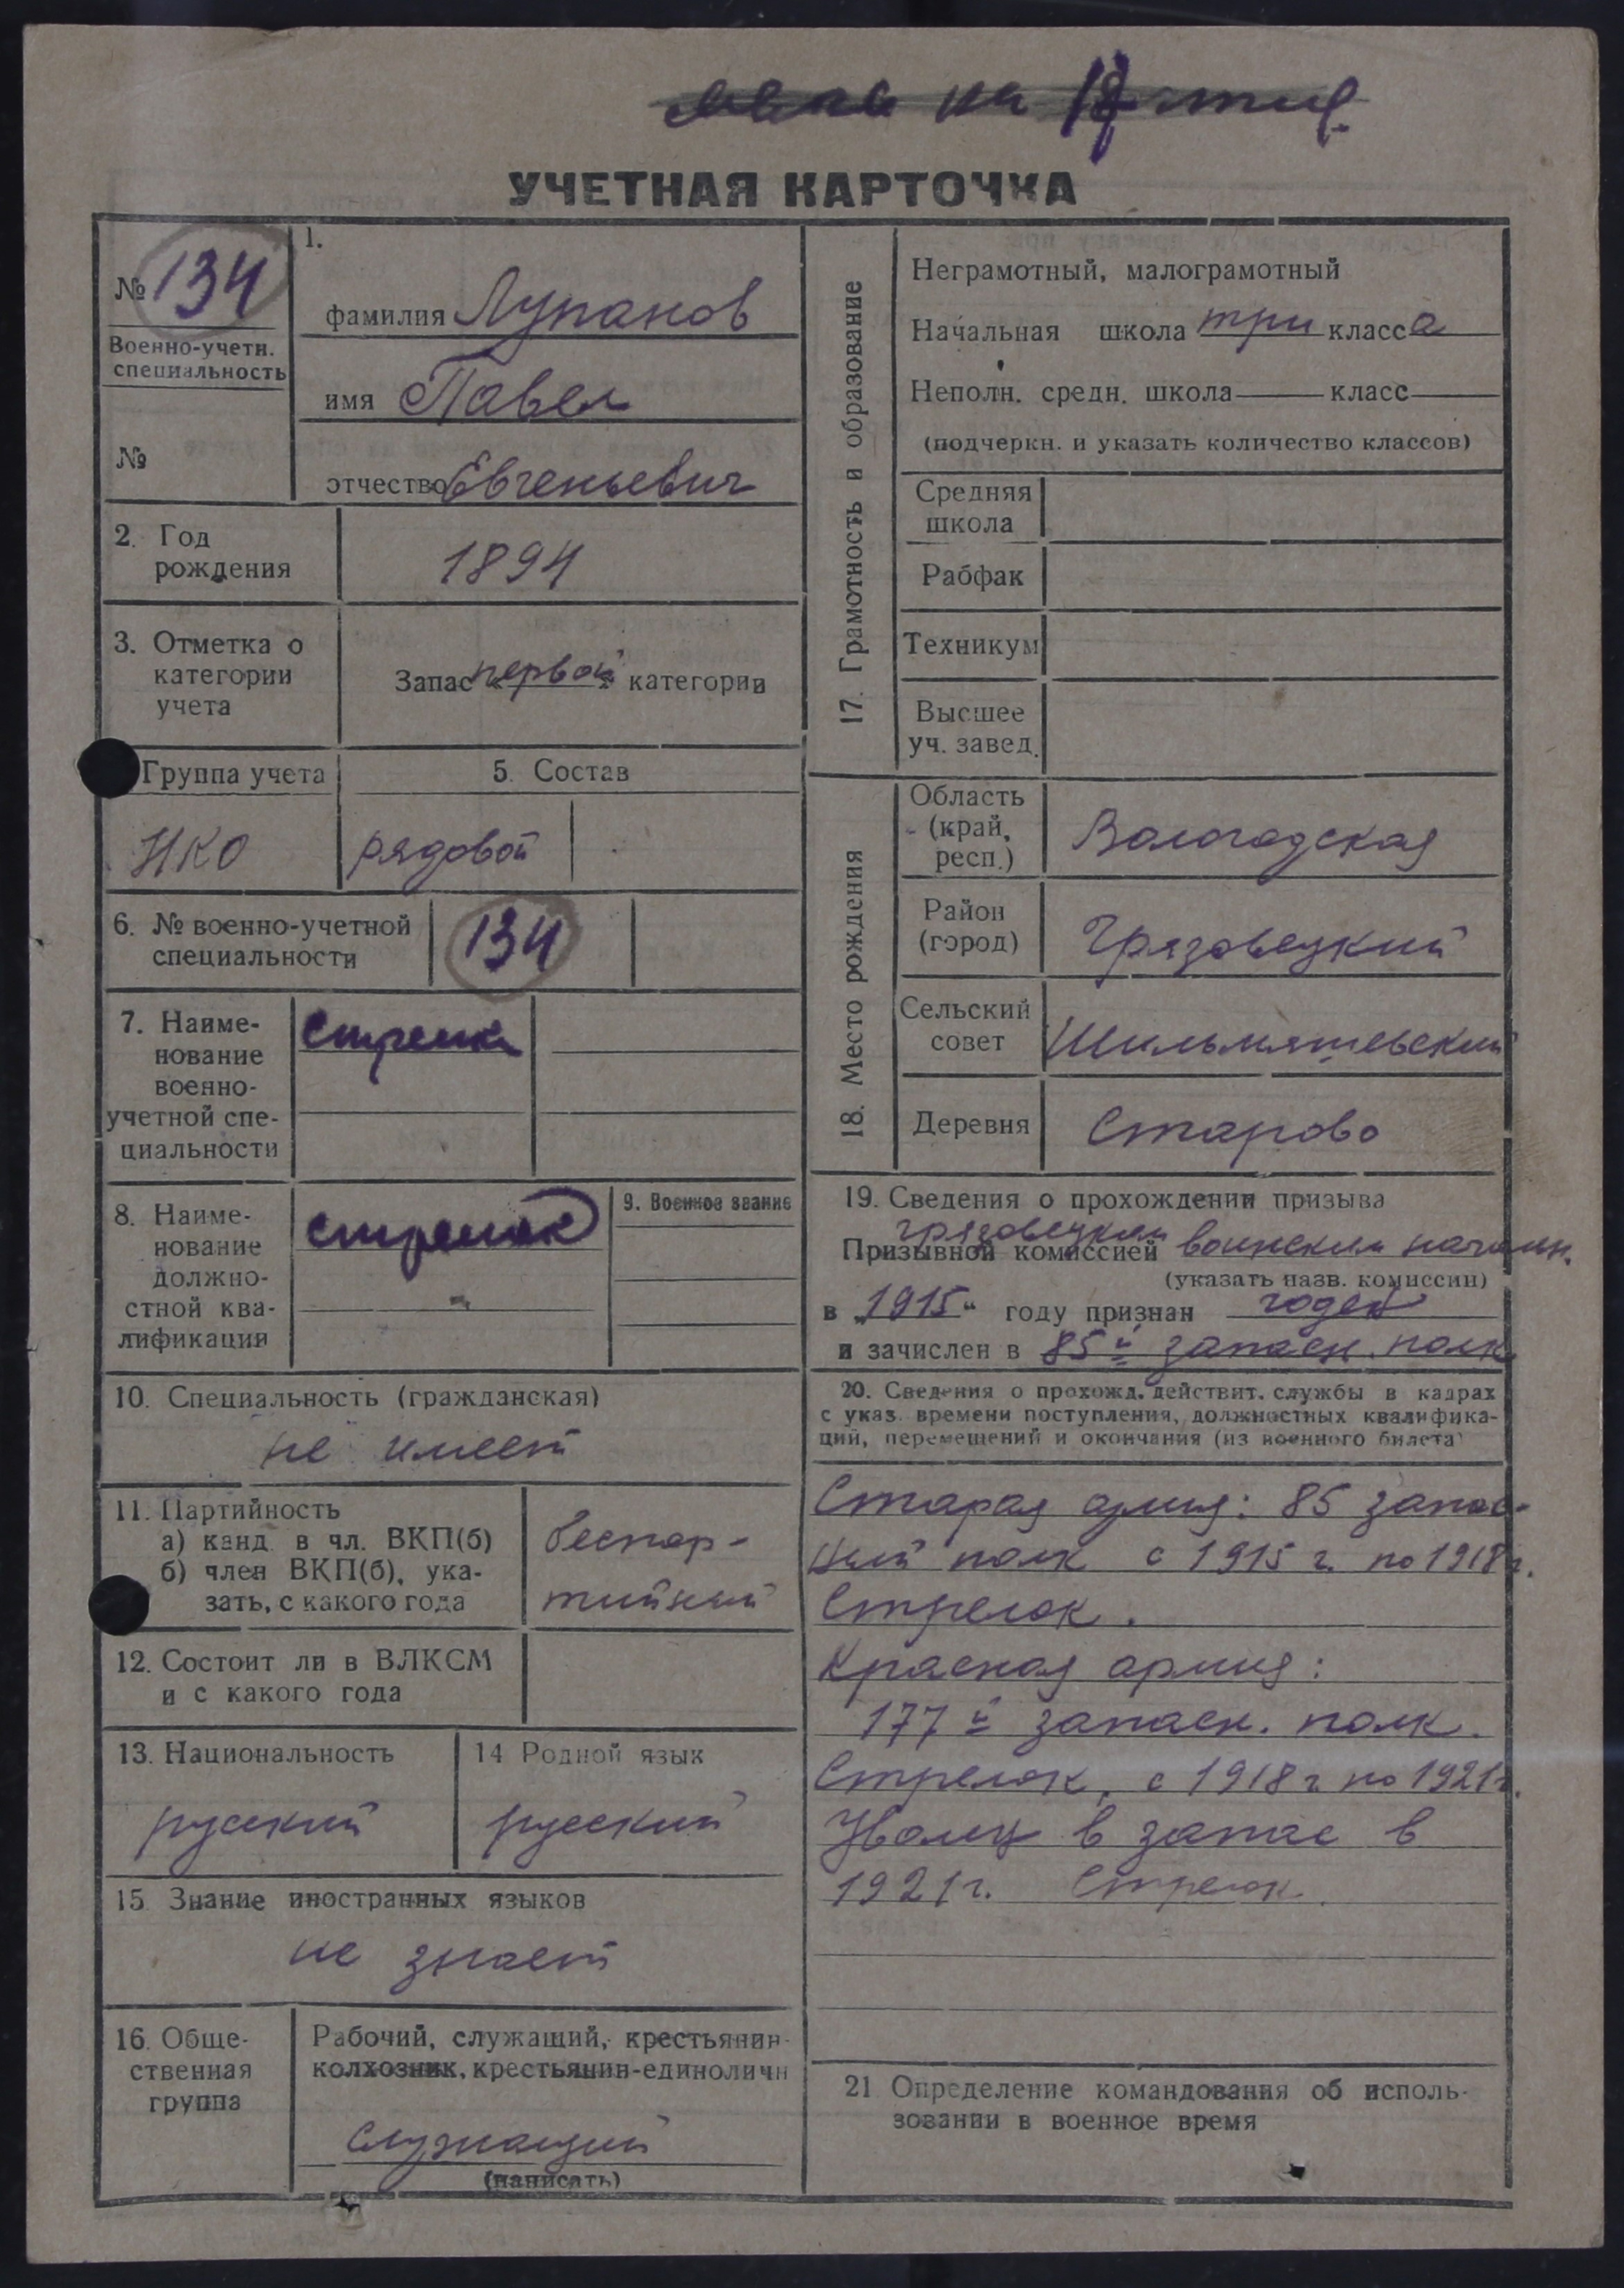 на
УЧЕТНАЯ КАРТОЧКА
№ 134
Военно-учетн.
специальность
№
1.
фамилия Лупанов
имя Павел
этчество Евгеньевич
2. Год
рождения
1894
3. Отметка о
категории
учета
Запас „первой“ категории
Группа учета
НКО
5. Состав
рядовой
6. № военно-учетной
специальности
134
7. Наиме-
нование
военно-
учетной спе-
циальности
стрелки
8. Наиме-
нование
должно-
стной ква-
лификации
стрелок
9. Военное звание
10. Специальность (гражданская)
не имеет
11. Партийность
а) канд. в чл. ВКП(б)
б) член ВКП(б), ука-
зать, с какого года
беспар-
тийный
12. Состоит ли в ВЛКСМ
и с какого года
13. Национальность
русский
14 Родной язык
русский
15 Знание иностранных языков
не знает
16. Обще-
ственная
группа
Рабочий, служащий, крестьянин-
колхозник, крестьянин-единоличн
служащий
(написать)
17. Грамотность и образование
Неграмотный, малограмотный
Начальная школа три класса
Неполн. средн. школа класс
(подчеркн. и указать количество классов)
Средняя
школа
Рабфак
Техникум
Высшее
уч. завед.
18. Место рождения
Область
(край,
респ.)
Вологодская
Район
(город)
Грязовецкий
Сельский
совет
Шильмяшевский
Деревня
Старово
19. Сведения о прохождении призыва
грязовецким
Призывной комиссией воинским начальн.
(указать назв. комиссии)
в „1915“ году признан годен
и зачислен в 85й запасн. полк
20. Сведения о прохожд. действит. службы в кадрах
с указ. времени поступления, должностных квалифика-
ций, перемещений и окончания (из военного билета)
Старая армия: 85 запас-
ный полк с 1915 г. по 1918 г.
Стрелок.
Красная армия:
177й запасн. полк.
Стрелок, с 1918 г. по 1921 г.
Уволен в запас в
1921 г. Стрелок.
21 Определение командования об исполь-
зовании в военное время